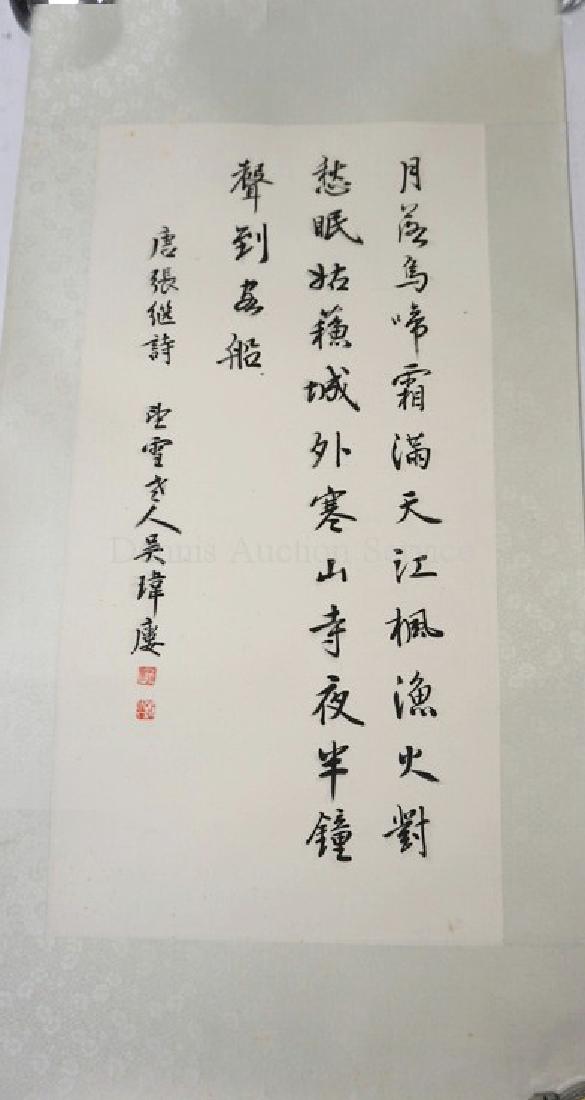 月落烏啼霜滿天江楓漁火對
愁眠姑蘇城外寒山寺夜半鐘
聲到客船
唐張繼詩 聖雪老人吳瑋廔
Dennis Auction Service